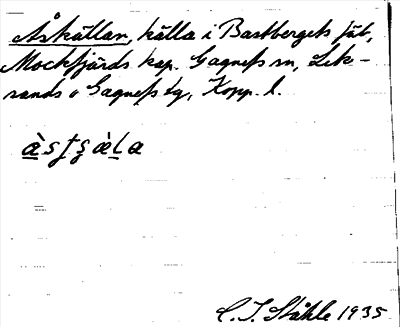 Åskällan, källa i Bastbergets fäb,
Mockfjärds kap. Gagnefs sn, Lek-
sands o Gagnefs tg, Kopp. l.
C. I. Ståhle 1935